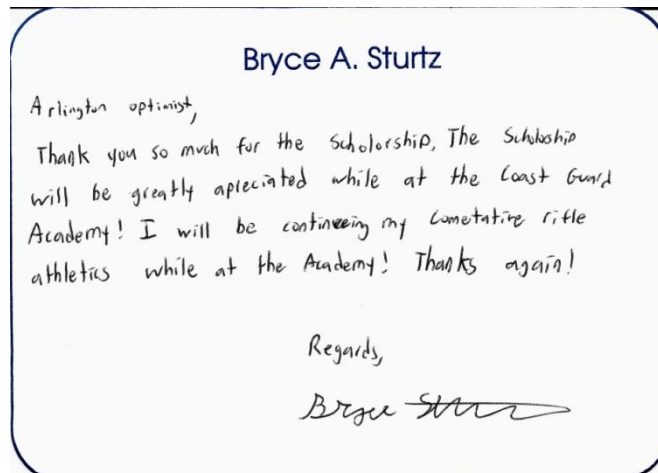 Bryce A. Sturtz
Arlington optimist,
Thank you so much for the Scholorship, The Scholoship
will be greatly apreciated while at the Coast Guard
Academy! I will be contineeing my Cometative rifle
athletics while at the Academy! Thanks again!
Regards,
Bryce Sturtz